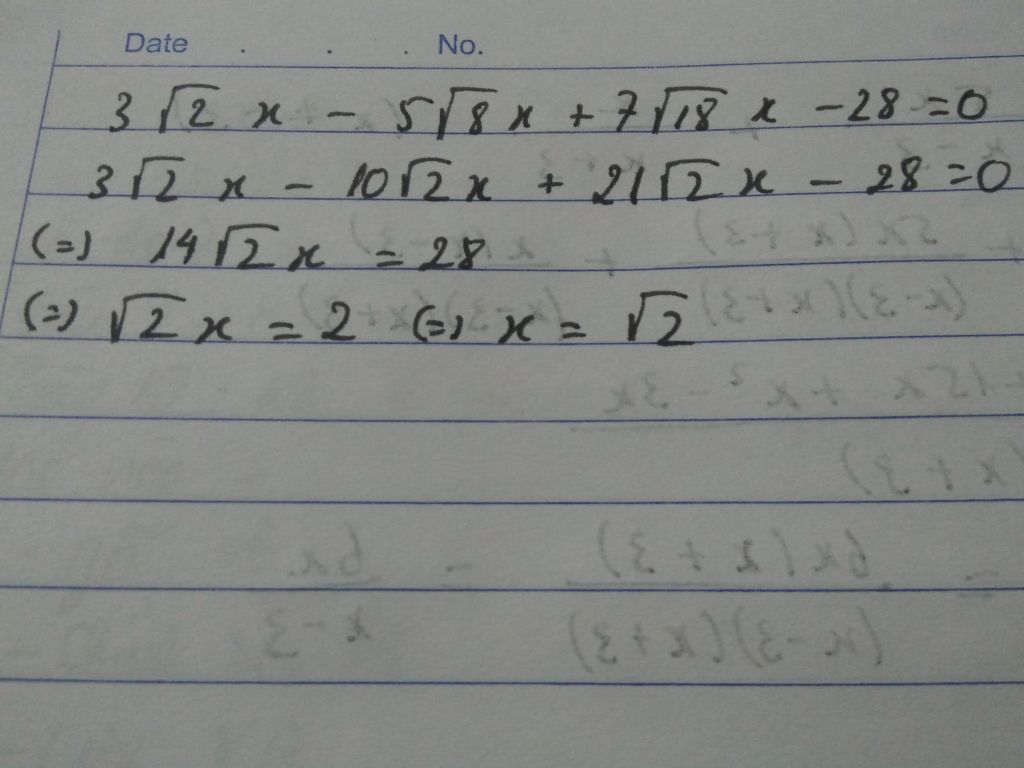 Date . . . No.
3√2 x - 5√8 x + 7√18 x - 28 = 0
3√2 x - 10√2 x + 21√2 x - 28 = 0
(=) 14√2 x = 28
(=) √2 x = 2 (=) x = √2